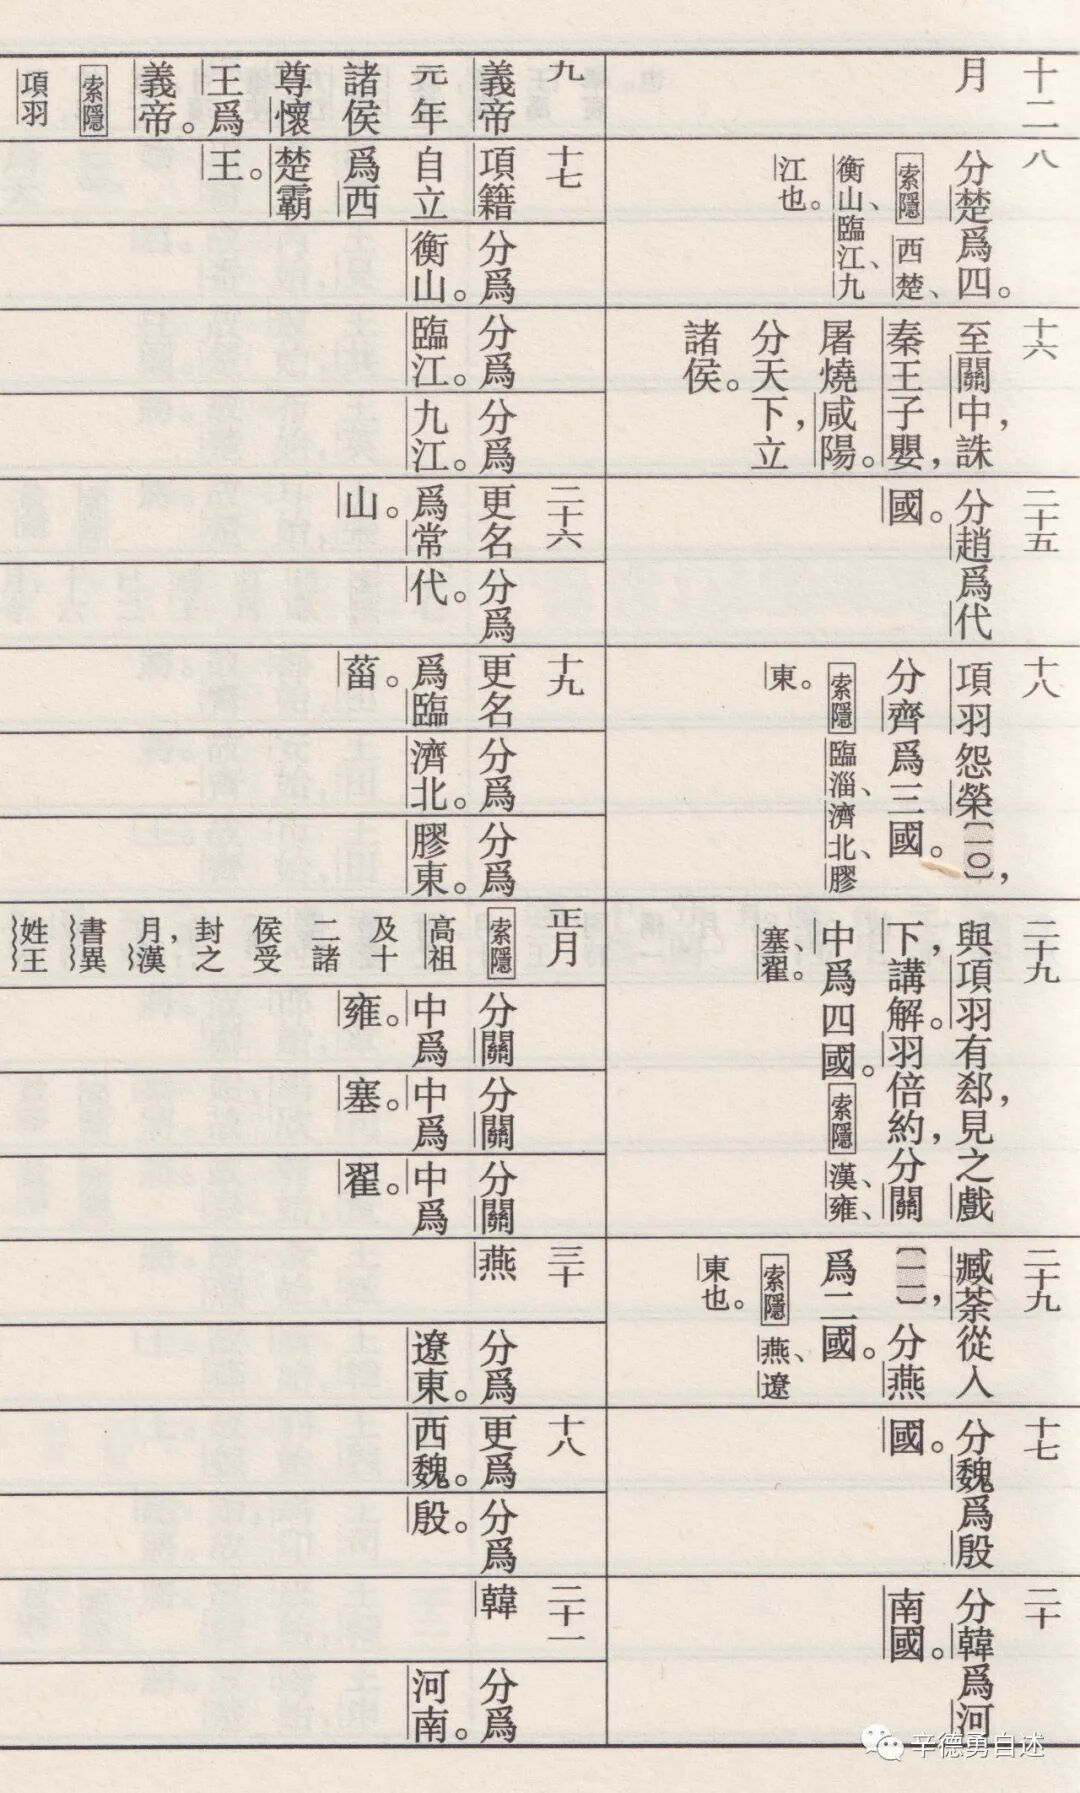 十二
月
八
分楚爲四。
索隱 西楚、
衡山、臨江、九
江也。
十六
至關中，誅
秦王子嬰，
屠燒咸陽。
分天下，立
諸侯。
二十五
分趙爲代
國。
十八
項羽怨榮〔一〇〕，
分齊爲三國。
索隱 臨淄、濟北、膠
東。
二十九
與項羽有郄，見之戲
下，講解。羽倍約，分關
中爲四國。索隱 漢、雍、
塞、翟。
二十九
臧荼從入
〔一一〕，分燕
爲二國。
索隱 燕、遼
東也。
十七
分魏爲殷
國。
二十
分韓爲河
南國。
九
義帝
元年
諸侯
尊懷
王爲
義帝。
索隱
項羽
十七
項籍
自立
爲西
楚霸
王。
分爲
衡山。
分爲
臨江。
分爲
九江。
二十六
更名
爲常
山。
分爲
代。
十九
更名
爲臨
菑。
分爲
濟北。
分爲
膠東。
正月
索隱
高祖
及十
二諸
侯受
封之
月，漢
書異
姓王
分關
中爲
雍。
分關
中爲
塞。
分關
中爲
翟。
三十
燕
分爲
遼東。
十八
更爲
西魏。
分爲
殷。
二十一
韓
分爲
河南。
辛德勇自述